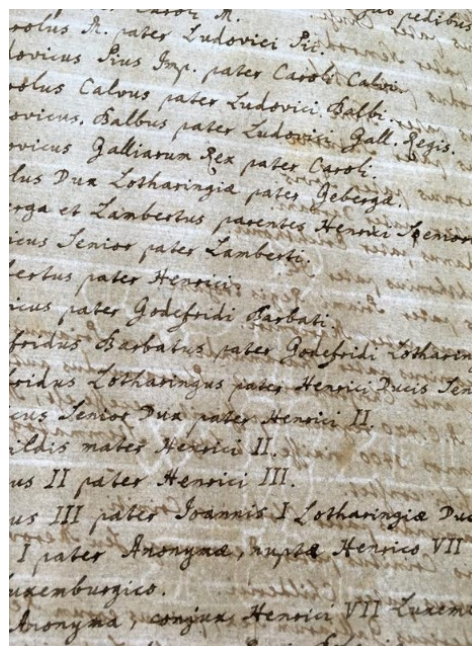 pater Caroli M. pedibus
rolus M. pater Ludovici Pii.
dovicus Pius Imp. pater Caroli Calvi.
rolus Calvus pater Ludovici Balbi.
ovicus. Balbus pater Ludovici Gall. Regis.
ovicus Galliarum Rex pater Caroli.
lus Dux Lotharingiæ pater Gebergæ.
erga et Lambertus parentes Henrici Senior
icus Senior pater Lamberti.
bertus pater Henrici
icus pater Godefridi Barbati.
fridus Barbatus pater Godefridi Lotharin
fridus Lotharingus pater Henrici Ducis Sen
cus Senior Dux pater Henrici II.
hildis mater Henrici II.
us II pater Henrici III.
us III pater Joannis I Lotharingiæ Duc
I pater Anonymæ, nuptæ Henrico VII
Luxemburgico.
Anonyma, conjux Henrici VII Luxem